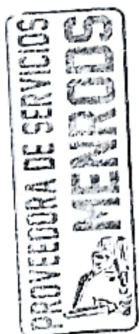 PROVEEDORA DE SERVICIOS
MENRODS